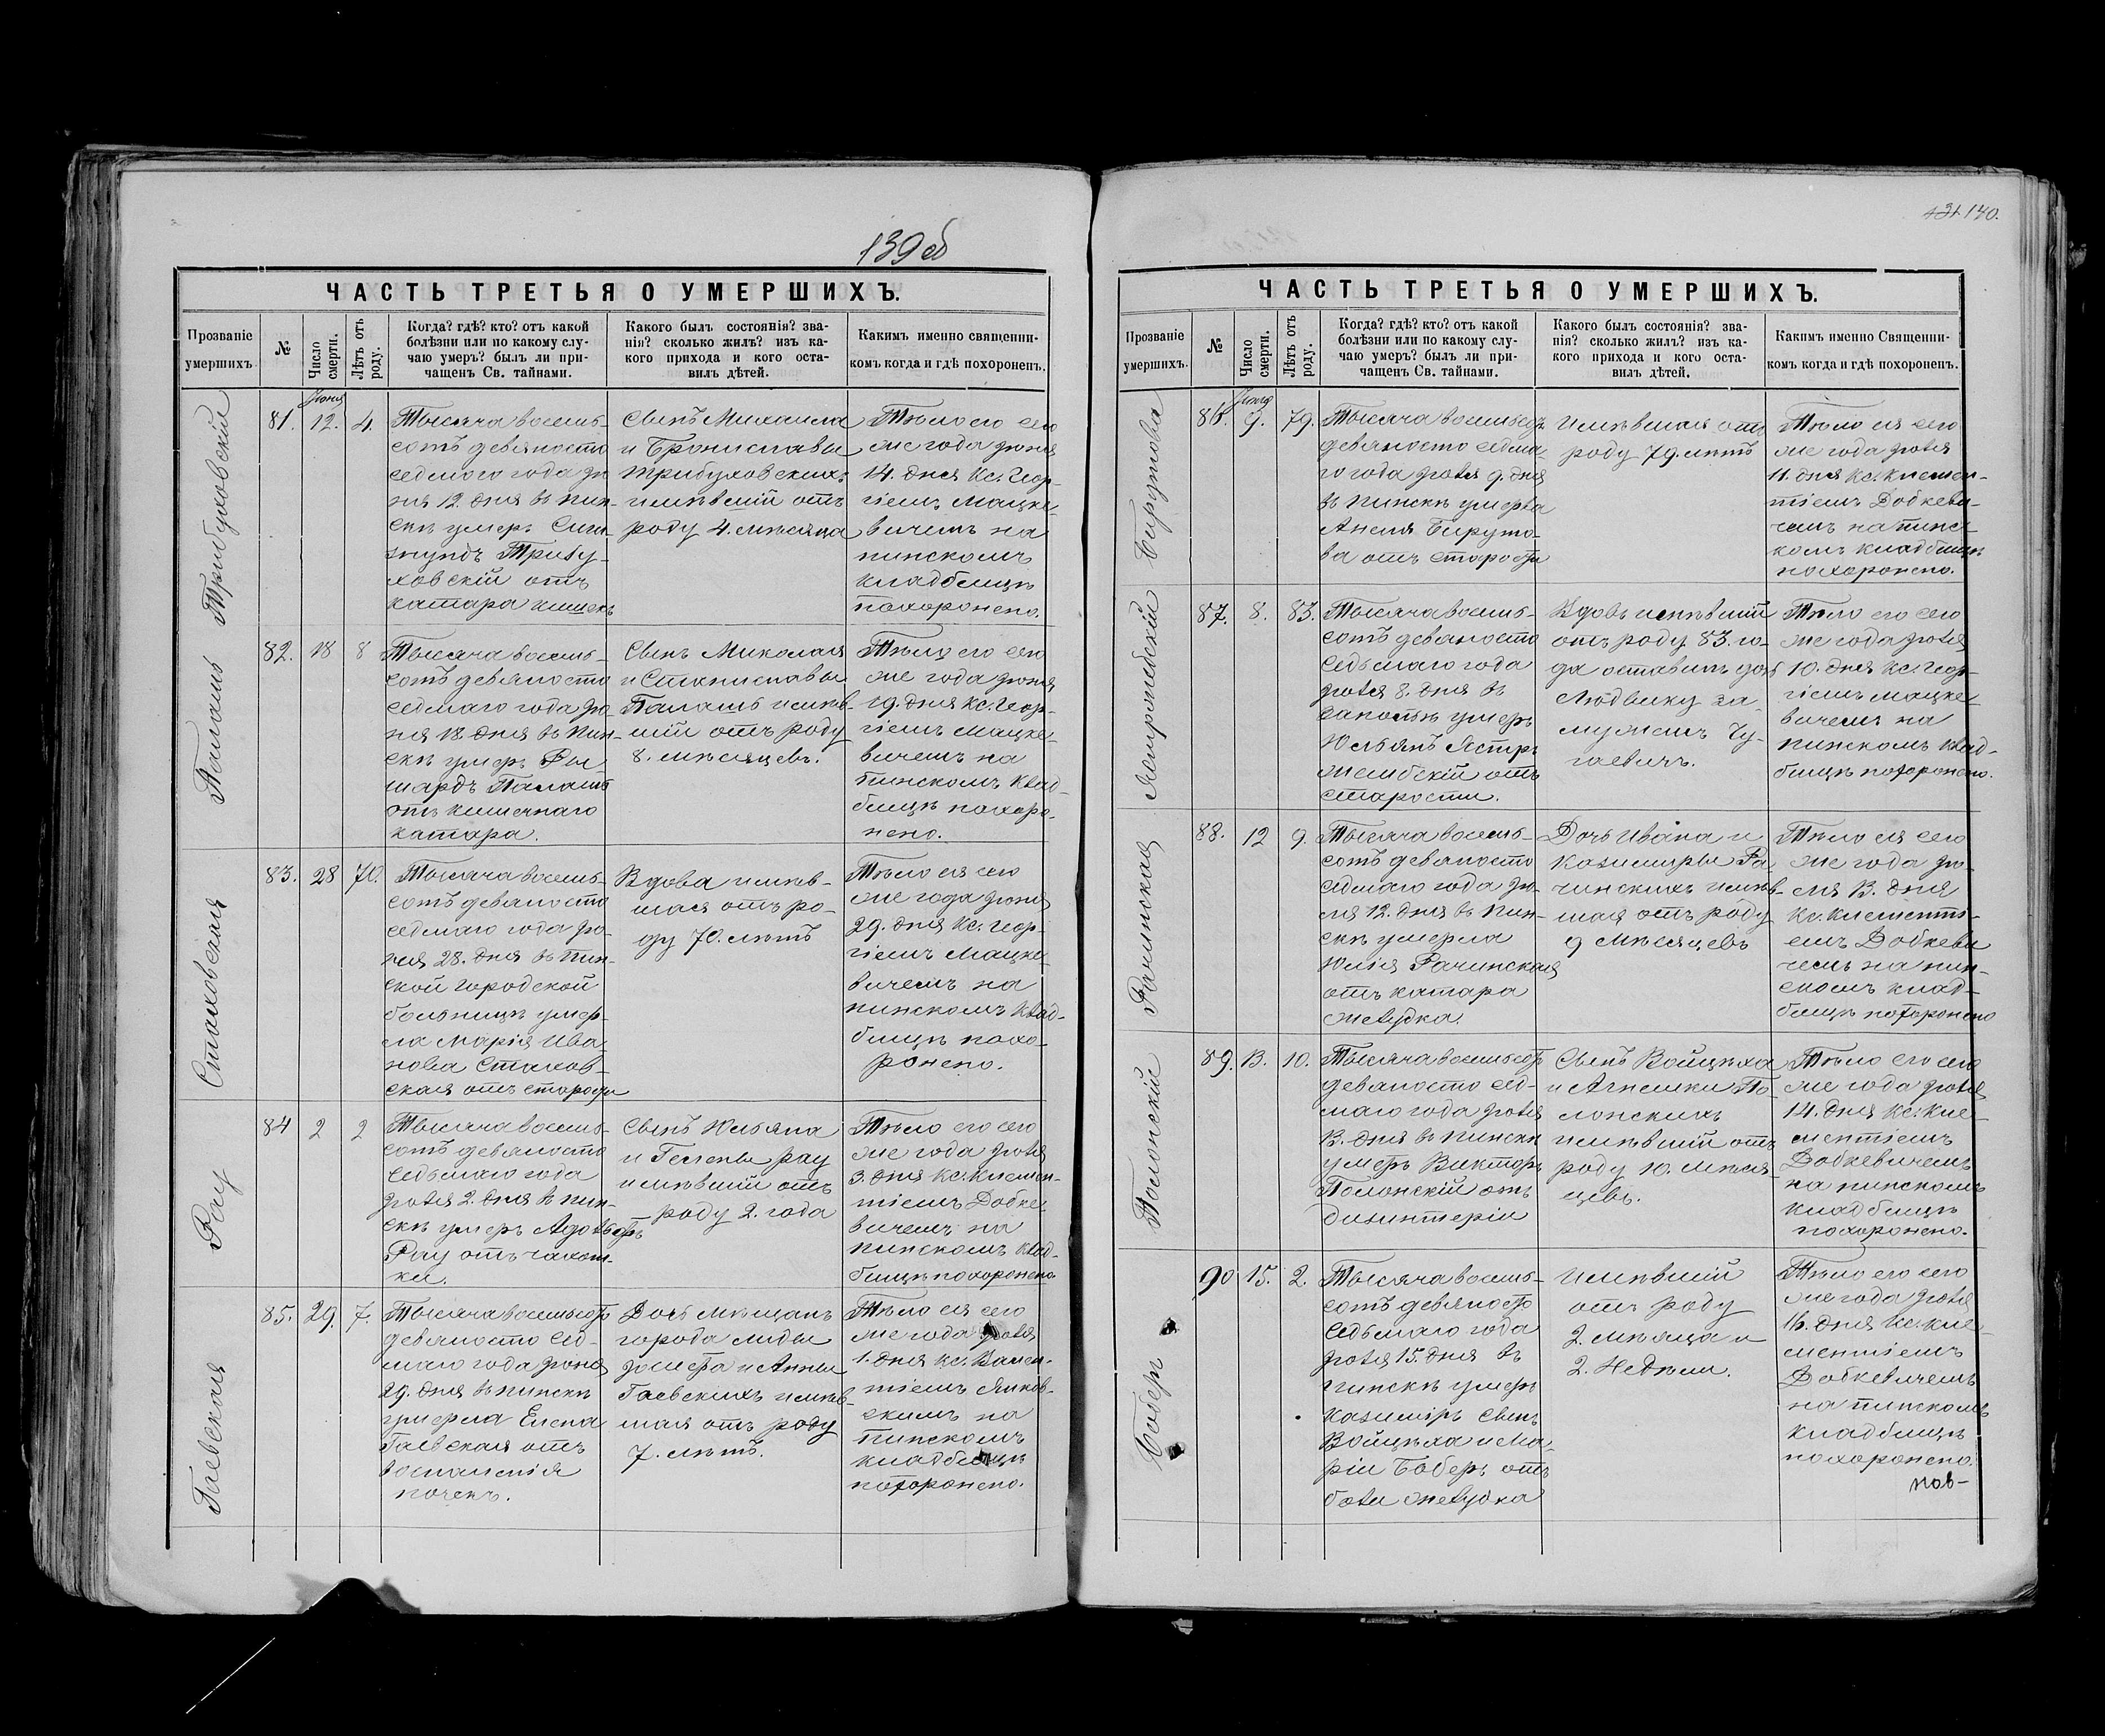 139об
ЧАСТЬ ТРЕТЬЯ О УМЕРШИХЪ.
Прозваніе умершихъ
№
Число смерти.
Лѣтъ отъ роду.
Когда? гдѣ? кто? отъ какой
болѣзни или по какому слу-
чаю умеръ? былъ ли при-
чащенъ Св. тайнами.
Какого былъ состоянія? зва-
нія? сколько жилъ? изъ ка-
кого прихода и кого оста-
вилъ дѣтей.
Какимъ именно священни-
комъ когда и гдѣ похороненъ.
Трибуховскій
81.
Іюня
12.
4.
Тысяча восемь-
сотъ девяносто
седмого года Ію-
ня 12. дня въ Пин-
скѣ умеръ Сиги-
змундъ Трибу-
ховскій отъ
катара кишекъ
Сынъ Михаила
и Брониславы
Трибуховскихъ
имѣвшій отъ
роду 4. мѣсяца
Тѣло его сего
же года Іюня
14. дня Кс. Геор-
гіемъ Мацке-
вичемъ на
пинскомъ
кладбищѣ
похоронено.
Паламъ
82.
18
8
Тысяча восемь-
сотъ девяносто
седмаго года Ію-
ня 18. дня въ Пин-
скѣ умеръ Ры-
шардъ Паламъ
отъ кишечнаго
катара.
Сынъ Миколая
и Станиславы
Паламъ имѣв-
шій отъ роду
8. мѣсяцевъ.
Тѣло его сего
же года Іюня
19. дня кс. Геор-
гіемъ Мацке-
вичемъ на
пинскомъ клад-
бищѣ похоро-
нено.
Стаховская
83.
28
70.
Тысяча восемь-
сотъ девяносто
седмаго года Ію-
ня 28. дня въ Пин-
ской городской
больницѣ умер-
ла Марія Ива-
нова Стахов-
ская отъ старости
Вдова имѣв-
шая отъ ро-
ду 70. лѣтъ
Тѣло ея сего
же года Іюня
29. дня кс. Геор-
гіемъ Мацке-
вичемъ на
пинскомъ клад-
бищѣ похо-
ронено.
Рау
84
2
2
Тысяча восемь-
сотъ девяносто
седьмаго года
Іюля 2. дня въ Пин-
скѣ умеръ Адольфъ
Рау отъ чахот-
ки.
Сынъ Юльяна
и Гелены Рау
имѣвшій отъ
роду 2. года
Тѣло его сего
же года Іюля
3. дня кс. Клемен-
тіемъ Добке-
вичемъ на
пинскомъ клад-
бищѣ похоронено
Гаевская
85.
29.
7.
Тысяча восемьсотъ
девяносто сед-
маго года Іюня
29. дня въ Пинскѣ
умерла Елена
Гаевская отъ
воспаленія
почекъ.
Дочь мѣщанъ
города Лиды
Іосифа и Анны
Гаевскихъ имѣв-
шая отъ роду
7. лѣтъ.
Тѣло ея сего
же года Іюля
1. дня кс. Вален-
тіемъ Янков-
скимъ на
Пинскомъ
кладбищѣ
похоронено.
140.
ЧАСТЬ ТРЕТЬЯ О УМЕРШИХЪ.
Прозваніе умершихъ.
№
Число смерти.
Лѣтъ отъ роду.
Когда? гдѣ? кто? отъ какой
болѣзни или по какому слу-
чаю умеръ? былъ ли при-
чащенъ Св. тайнами.
Какого былъ состоянія? зва-
нія? сколько жилъ? изъ ка-
кого прихода и кого оста-
вилъ дѣтей.
Какимъ именно Священни-
комъ когда и гдѣ похороненъ.
Бирутова
86.
Іюля
9.
79.
Тысяча восемьсотъ
девяносто седма-
го года Іюля 9. дня
въ Пинскѣ умерла
Анеля Бируто-
ва отъ старости
имѣвшая отъ
роду 79. лѣтъ
Тѣло ея сего
же года Іюля
11. дня кс. Клемен-
тіемъ Добкеви-
чемъ на пинс-
комъ кладбищѣ
похоронено.
Ястржембскій
87.
8.
83.
Тысяча восемь-
сотъ девяносто
седьмаго года
Іюля 8. дня въ
умеръ
Юльянъ Ястр-
жембскій отъ
старости.
Вдовъ имѣвшій
отъ роду 83. го-
да оставилъ дочь
Людвику за-
мужемъ
Тѣло его сего
же года Іюля
10. дня кс. Геор-
гіемъ Мацке-
вичемъ на
пинскомъ клад-
бищѣ похоронено.
Рачинская
88.
12
9.
Тысяча восемь-
сотъ девяносто
седмаго года Ію-
ля 12. дня въ Пин-
скѣ умерла
Юлія Рачинская
отъ катара
желудка.
Дочь Ивана и
Казимиры Ра-
чинскихъ имѣв-
шая отъ роду
9 мѣсяцевъ
Тѣло ея сего
же года Ію-
ля 13. дня
кс. Клементі-
емъ Добкеви-
чемъ на пин-
скомъ клад-
бищѣ похоронено
Полонскій
89.
13.
10.
Тысяча восемьсотъ
девяносто сед-
маго года Іюля
13. дня въ Пинскѣ
умеръ Викторъ
Полонскій отъ
дизинтеріи
Сынъ Войцѣха
и Агнешки По-
лонскихъ
имѣвшій отъ
роду 10. мѣся-
цевъ.
Тѣло его сего
же года Іюля
14. дня кс. Кле-
ментіемъ
Добкевичемъ
на пинскомъ
кладбищѣ
похоронено.
Боберъ
90
15.
2.
Тысяча восемь-
сотъ девяносто
седьмаго года
Іюля 15. дня въ
Пинскѣ умеръ
Казиміръ сынъ
Войцѣха и Ма-
ріи Боберъ отъ
боли желудка
Имѣвшій
отъ роду
2. мѣсяца и
2. недѣли.
Тѣло его сего
же года Іюля
16. дня кс. Кле-
ментіемъ
Добкевичемъ
на пинскомъ
кладбищѣ
похоронено.